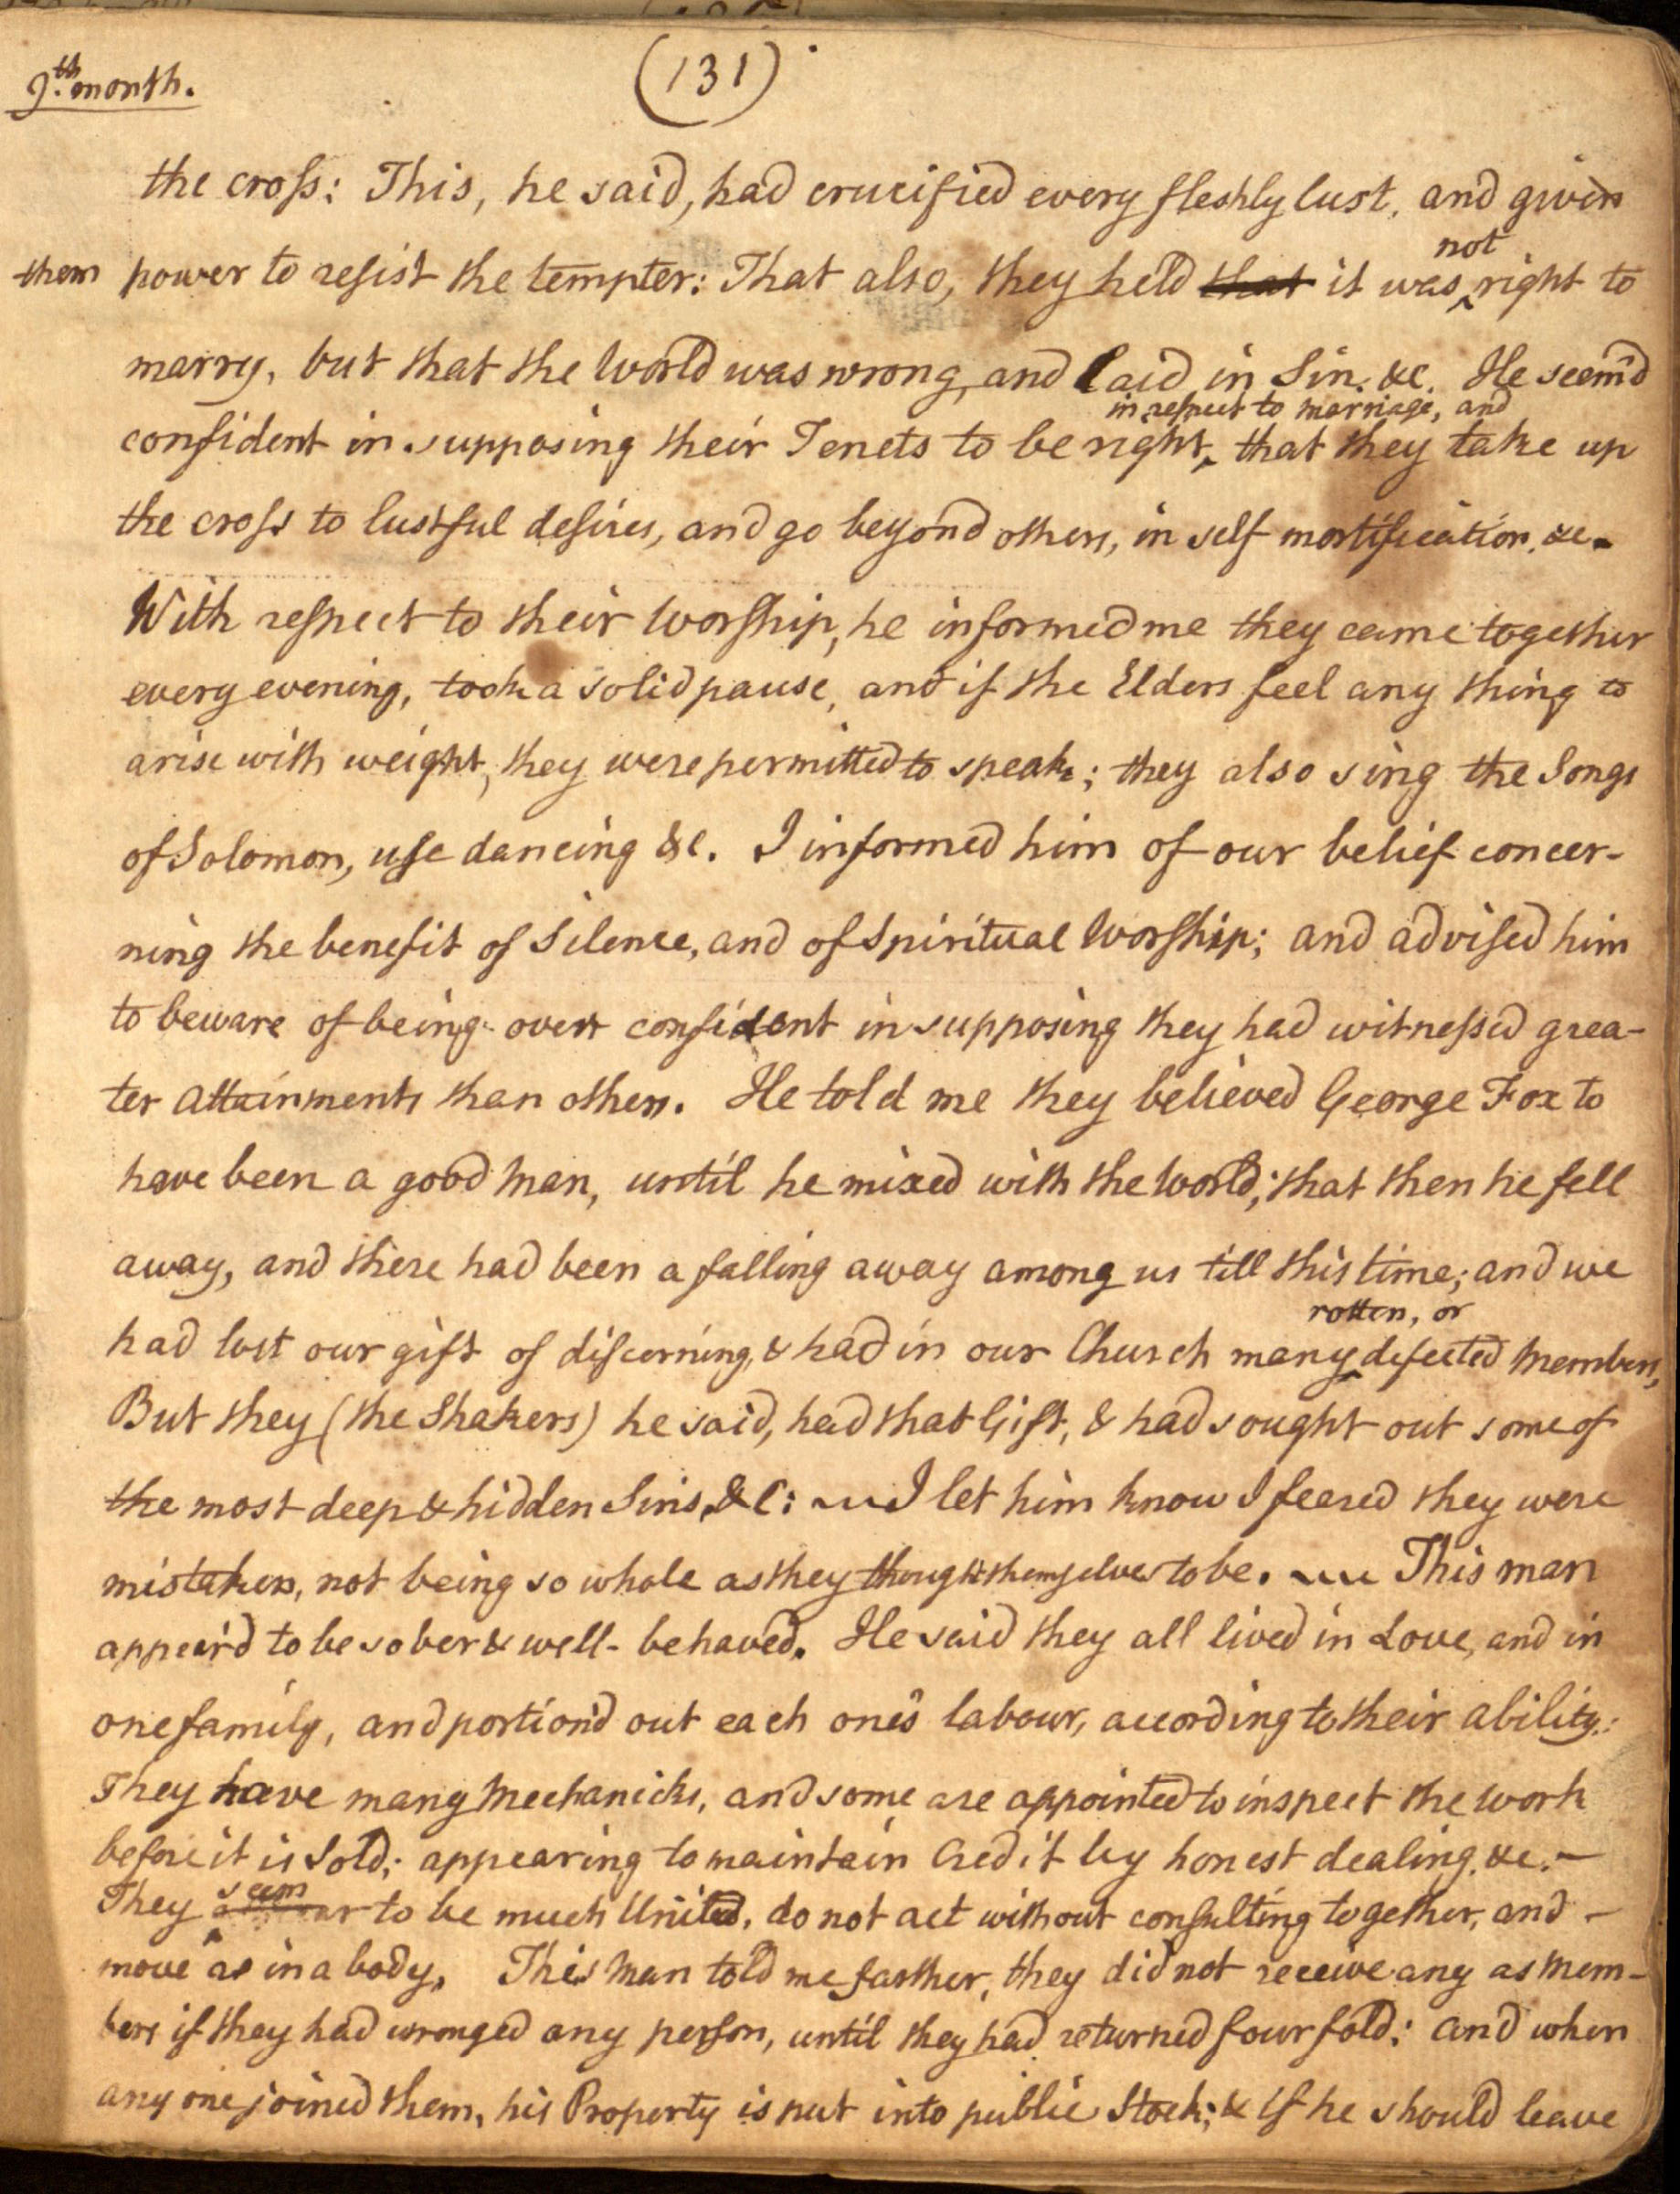 9.th month.
(131)
the cross: This, he said, had crucified every fleshly lust, and given
them power to resist the tempter: That also, they held that it was not right to
marry, but that the World was wrong, and laid in Sin. &c. He seem'd
in respect to marriage, and
confident in supposing their Tenets to be right, that they take up
the cross to lustful desires, and go beyond others, in self mortification. &c.
With respect to their Worship, he informed me they came together
every evening, took a solid pause, and if the Elders feel any thing to
arise with weight, they were permitted to speak; they also sing the Songs
of Solomon, use dancing &c. I informed him of our belief concer-
ning the benefit of Silence, and of Spiritual Worship; and advised him
to beware of being over confident in supposing they had witnessed grea-
ter attainments than others. He told me they believed George Fox to
have been a good Man, until he mixed with the World; that then he fell
away, and there had been a falling away among us till this time; and we
rotten, or
had lost our gift of discerning, & had in our Church many defected Members,
But they (the Shakers) he said, had that Gift, & had sought out some of
the most deep & hidden Sins, &c: I let him know I feared they were
mistaken, not being so whole as they thought themselves to be. This man
appear'd to be sober & well-behaved. He said they all lived in Love, and in
one family, and portion'd out each one's labour, according to their ability:
They have many Mechanicks, and some are appointed to inspect the work
before it is Sold; appearing to maintain Credit by honest dealing. &c.
They seem to be much United, do not act without consulting together, and
move as in a body. This Man told me farther, they did not receive any as Mem-
bers if they had wronged any person, until they had returned four fold: and when
any one joined them, his Property is put into public Stock; & If he should leave